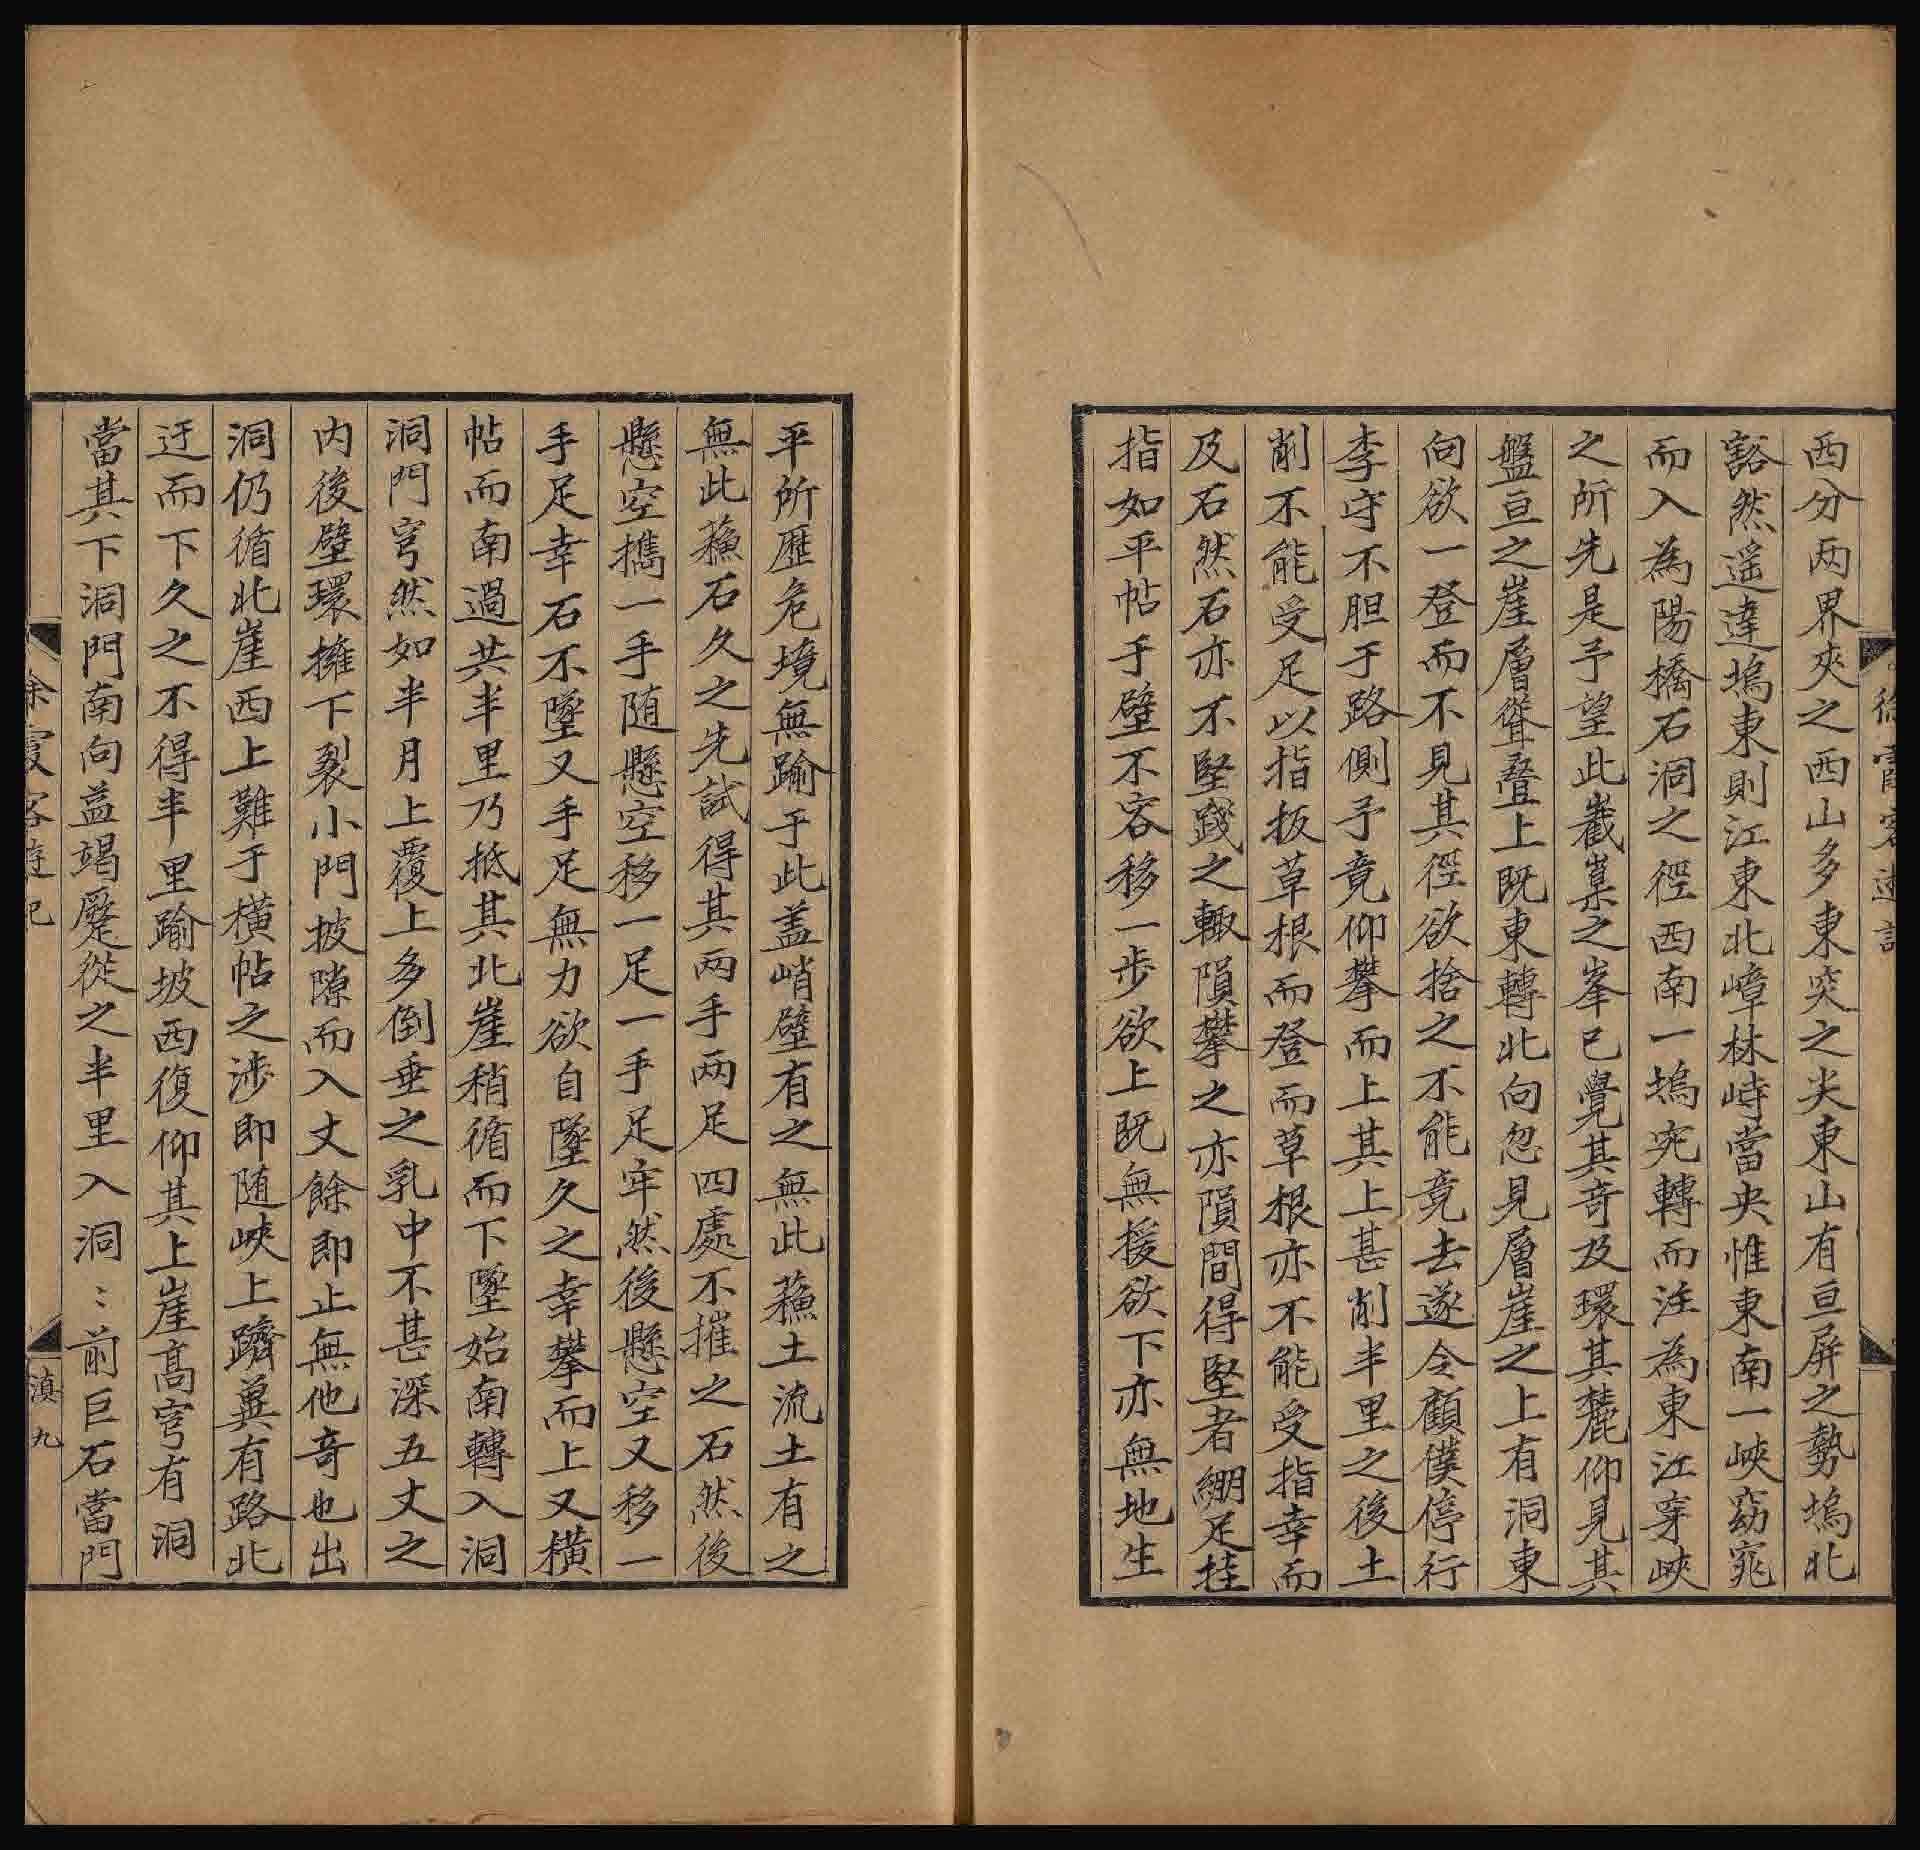 徐霞客遊記
西分两界夾之西山多東突之尖東山有亘屏之勢塢北
豁然遥達塢東則江東北嶂林峙當央惟東南一峽窈窕
而入為陽橋石洞之徑西南一塢宛轉而注為東江穿峽
之所先是予望此巀嵲之峯已覺其奇及環其麓仰見其
盤亘之崖層聳疊上既東轉北向忽見層崖之上有洞東
向欲一登而不見其徑欲捨之不能竟去遂令顧僕停行
李守不胆于路側予竟仰攀而上其上甚削半里之後土
削不能受足以指扳草根而登而草根亦不能受指幸而
及石然石亦不堅踐之輙隕攀之亦隕間得堅者繃足挂
指如平帖于壁不容移一步欲上既無援欲下亦無地生
平所歷危境無踰于此盖峭壁有之無此蘓土流土有之
無此蘓石久之先試得其两手两足四處不摧之石然後
懸空擕一手随懸空移一足一手足牢然後懸空又移一
手足幸石不墜又手足無力欲自墜久之幸攀而上又横
帖而南過共半里乃抵其北崖稍循而下墜始南轉入洞
洞門穹然如半月上覆上多倒垂之乳中不甚深五丈之
内後壁環擁下裂小門披隙而入丈餘即止無他奇也出
洞仍循北崖西上難于横帖之涉即随峽上躋冀有路北
迂而下久之不得半里踰坡西復仰其上崖髙穹有洞
當其下洞門南向益竭蹙從之半里入洞〻前巨石當門
徐霞客遊記
滇九